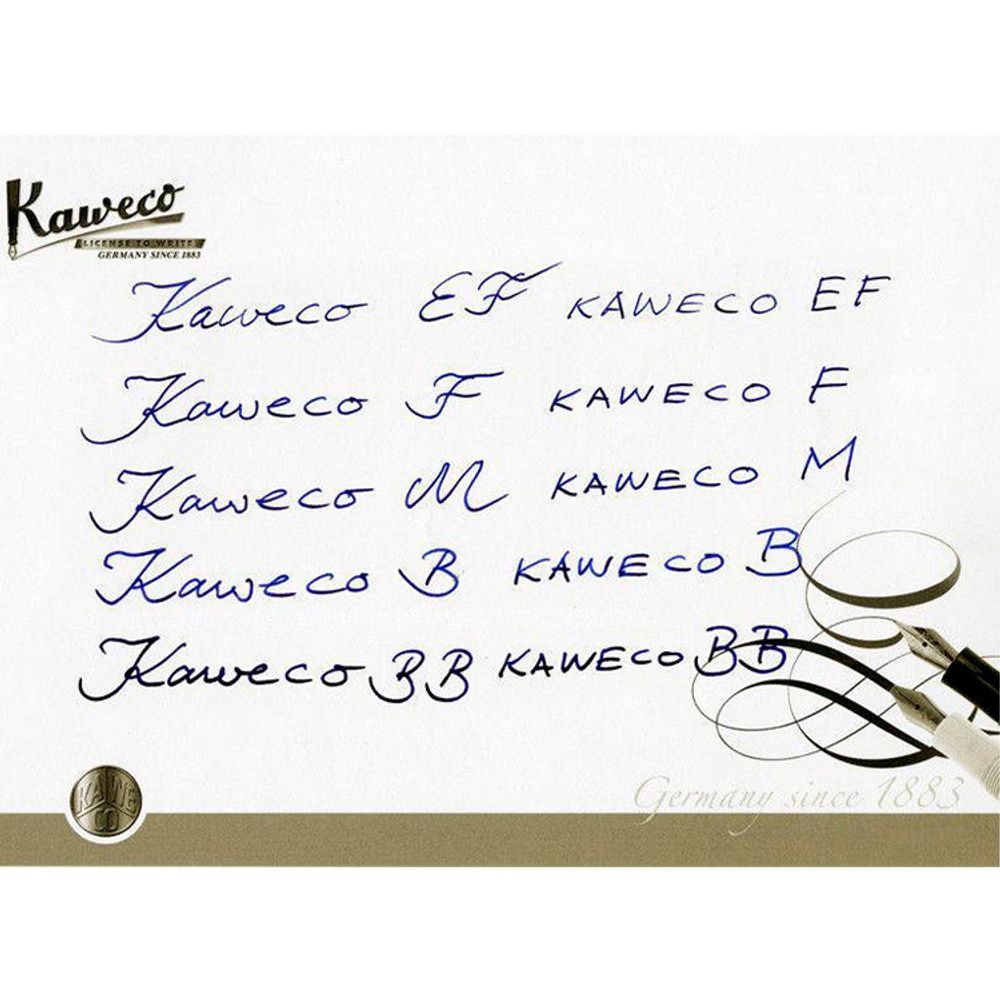 Kaweco
LICENSE TO WRITE
GERMANY SINCE 1883
Kaweco EF KAWECO EF
Kaweco F KAWECO F
Kaweco M KAWECO M
Kaweco B KAWECO B
Kaweco BB KAWECO BB
KAWE
CO
Germany since 1883